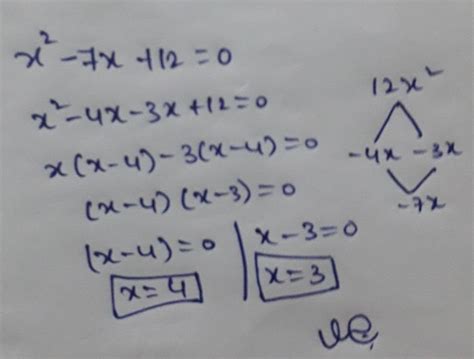 x² - 7x + 12 = 0
x² - 4x - 3x + 12 = 0
x(x - 4) - 3(x - 4) = 0
(x - 4) (x - 3) = 0
(x - 4) = 0 | x - 3 = 0
x = 4 | x = 3
12x²
-4x -3x
-7x